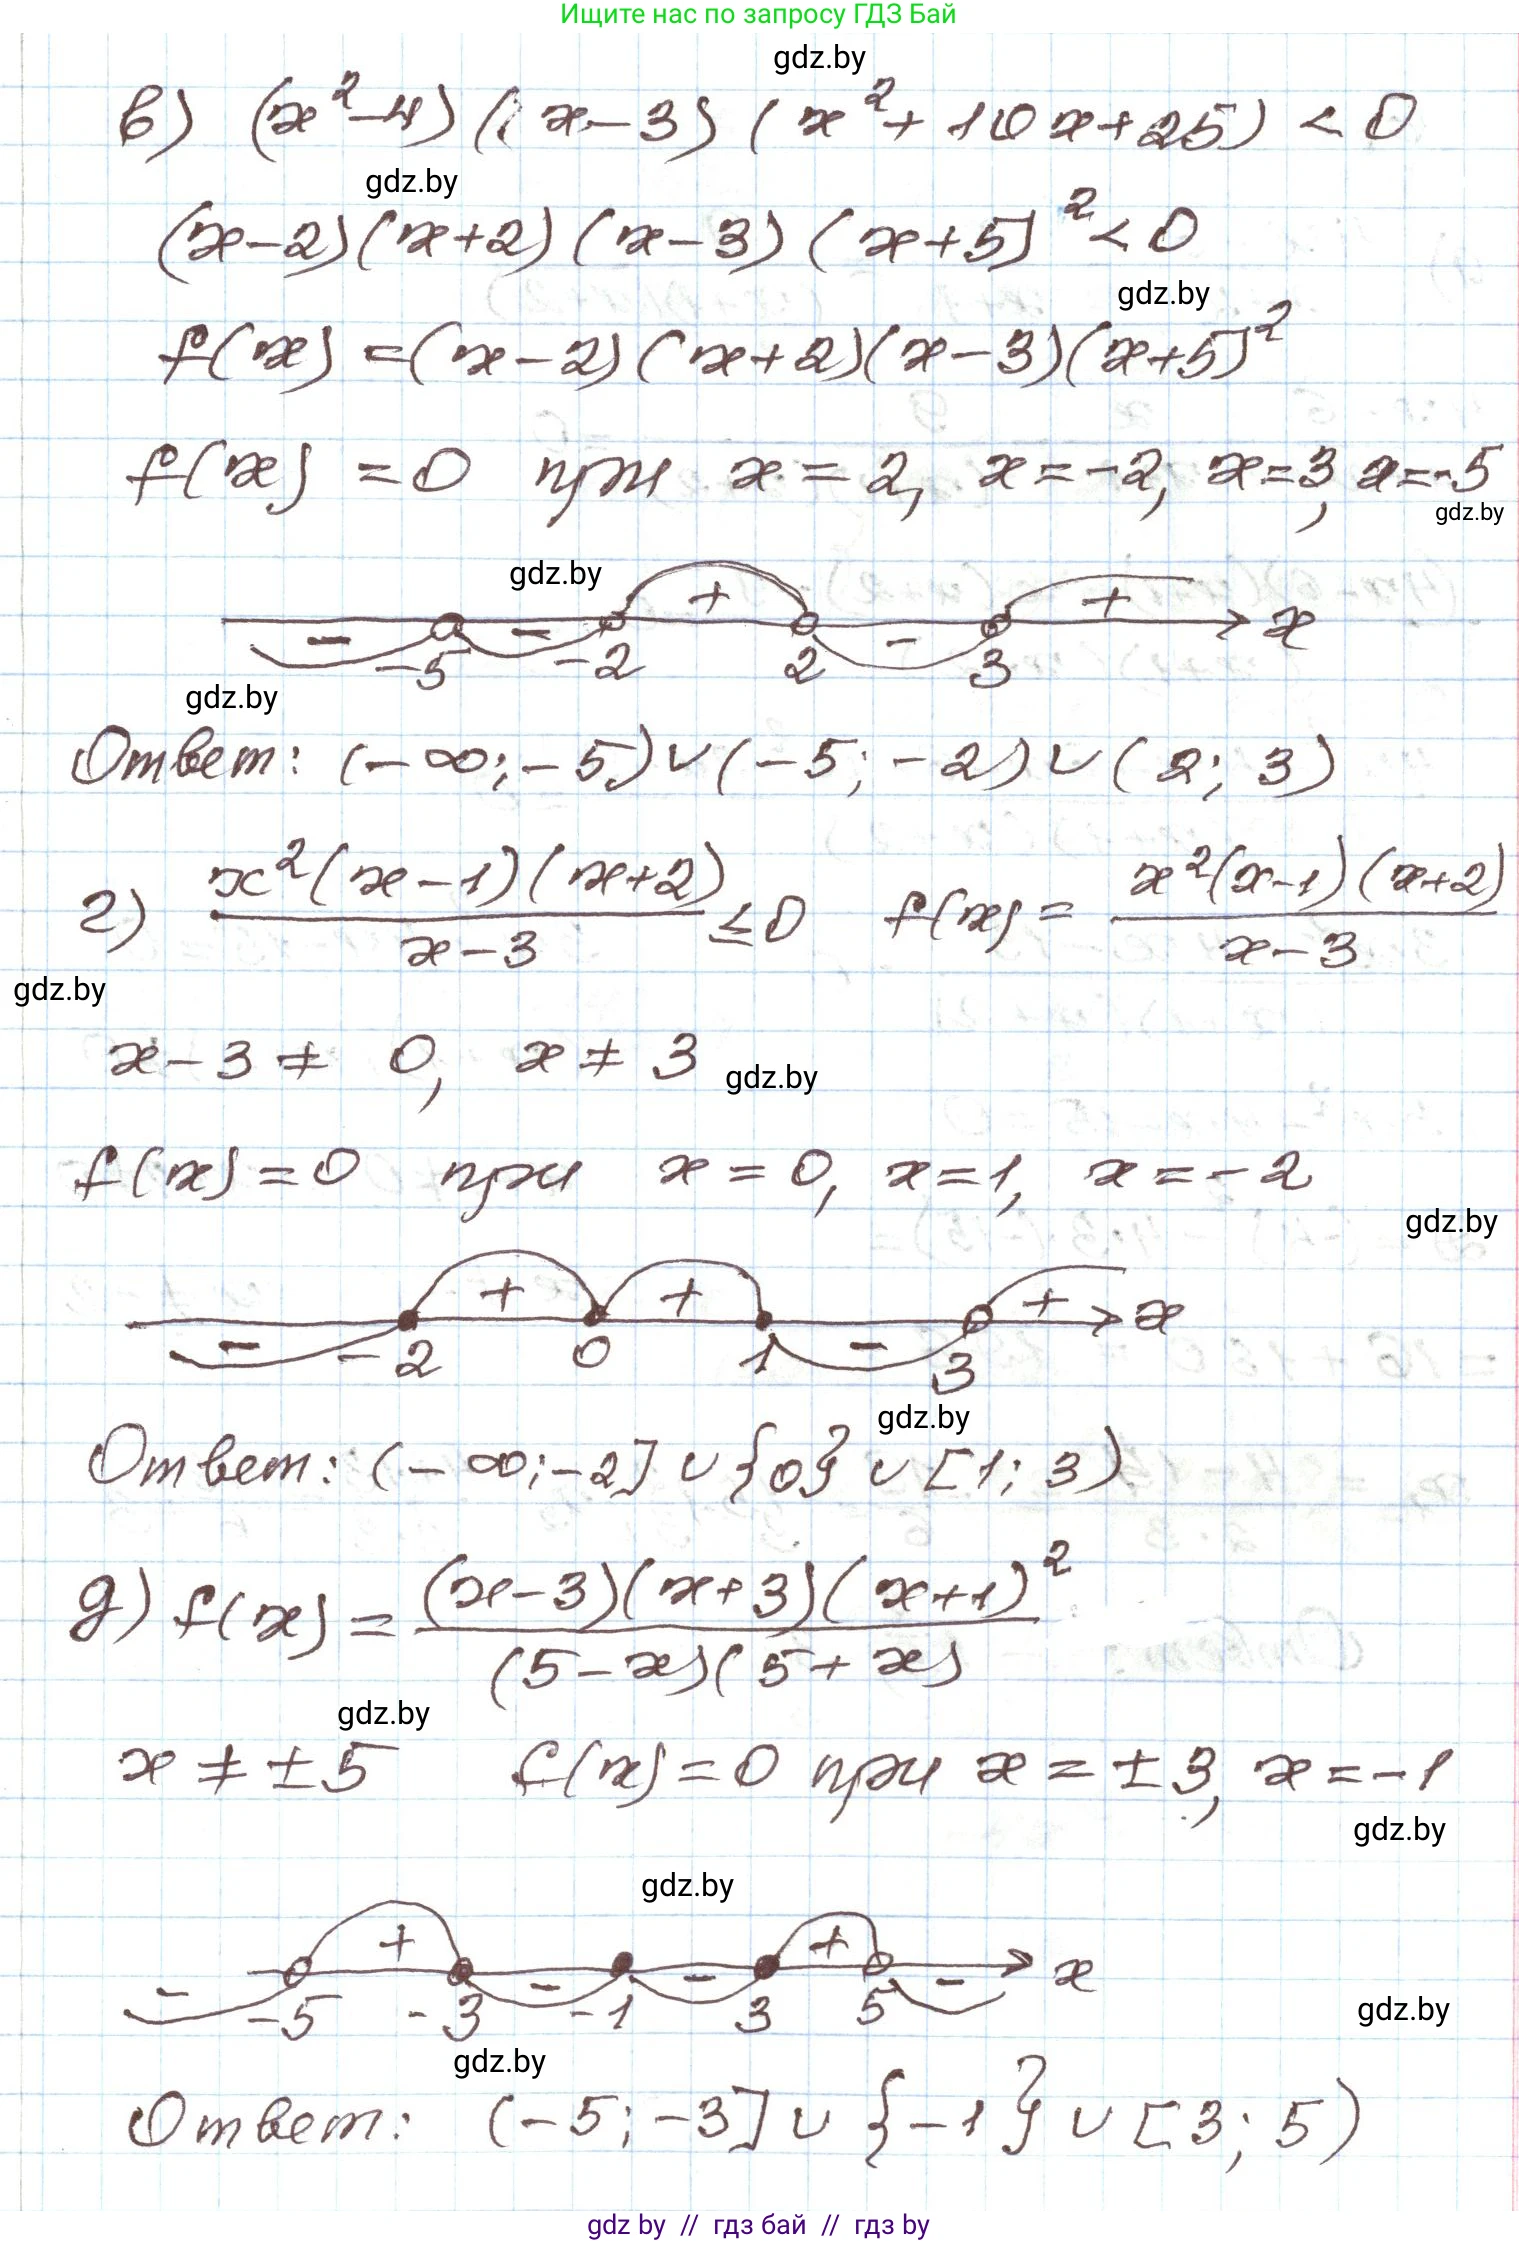 Ищите нас по запросу ГДЗ Бай
gdz.by
в) (x²-4)(x-3)(x²+10x+25)<0
gdz.by
(x-2)(x+2)(x-3)(x+5)²<0
gdz.by
f(x)=(x-2)(x+2)(x-3)(x+5)²
f(x)=0 при x=2, x=-2, x=3, x=-5
gdz.by
gdz.by
- - + - + x
-5 -2 2 3
gdz.by
Ответ: (-∞;-5)∪(-5;-2)∪(2;3)
г) x²(x-1)(x+2)/(x-3) ≤0 f(x)= x²(x-1)(x+2)/(x-3)
gdz.by
x-3≠0, x≠3
gdz.by
f(x)=0 при x=0, x=1, x=-2
gdz.by
- + + - + x
-2 0 1 3
gdz.by
Ответ: (-∞;-2]∪{0}∪[1;3)
д) f(x)= (x-3)(x+3)(x+1)²/(5-x)(5+x)
gdz.by
x≠±5 f(x)=0 при x=±3, x=-1
gdz.by
gdz.by
- + - - + - x
-5 -3 -1 3 5
gdz.by
gdz.by
Ответ: (-5;-3]∪{-1}∪[3;5)
gdz by // гдз бай // гдз by